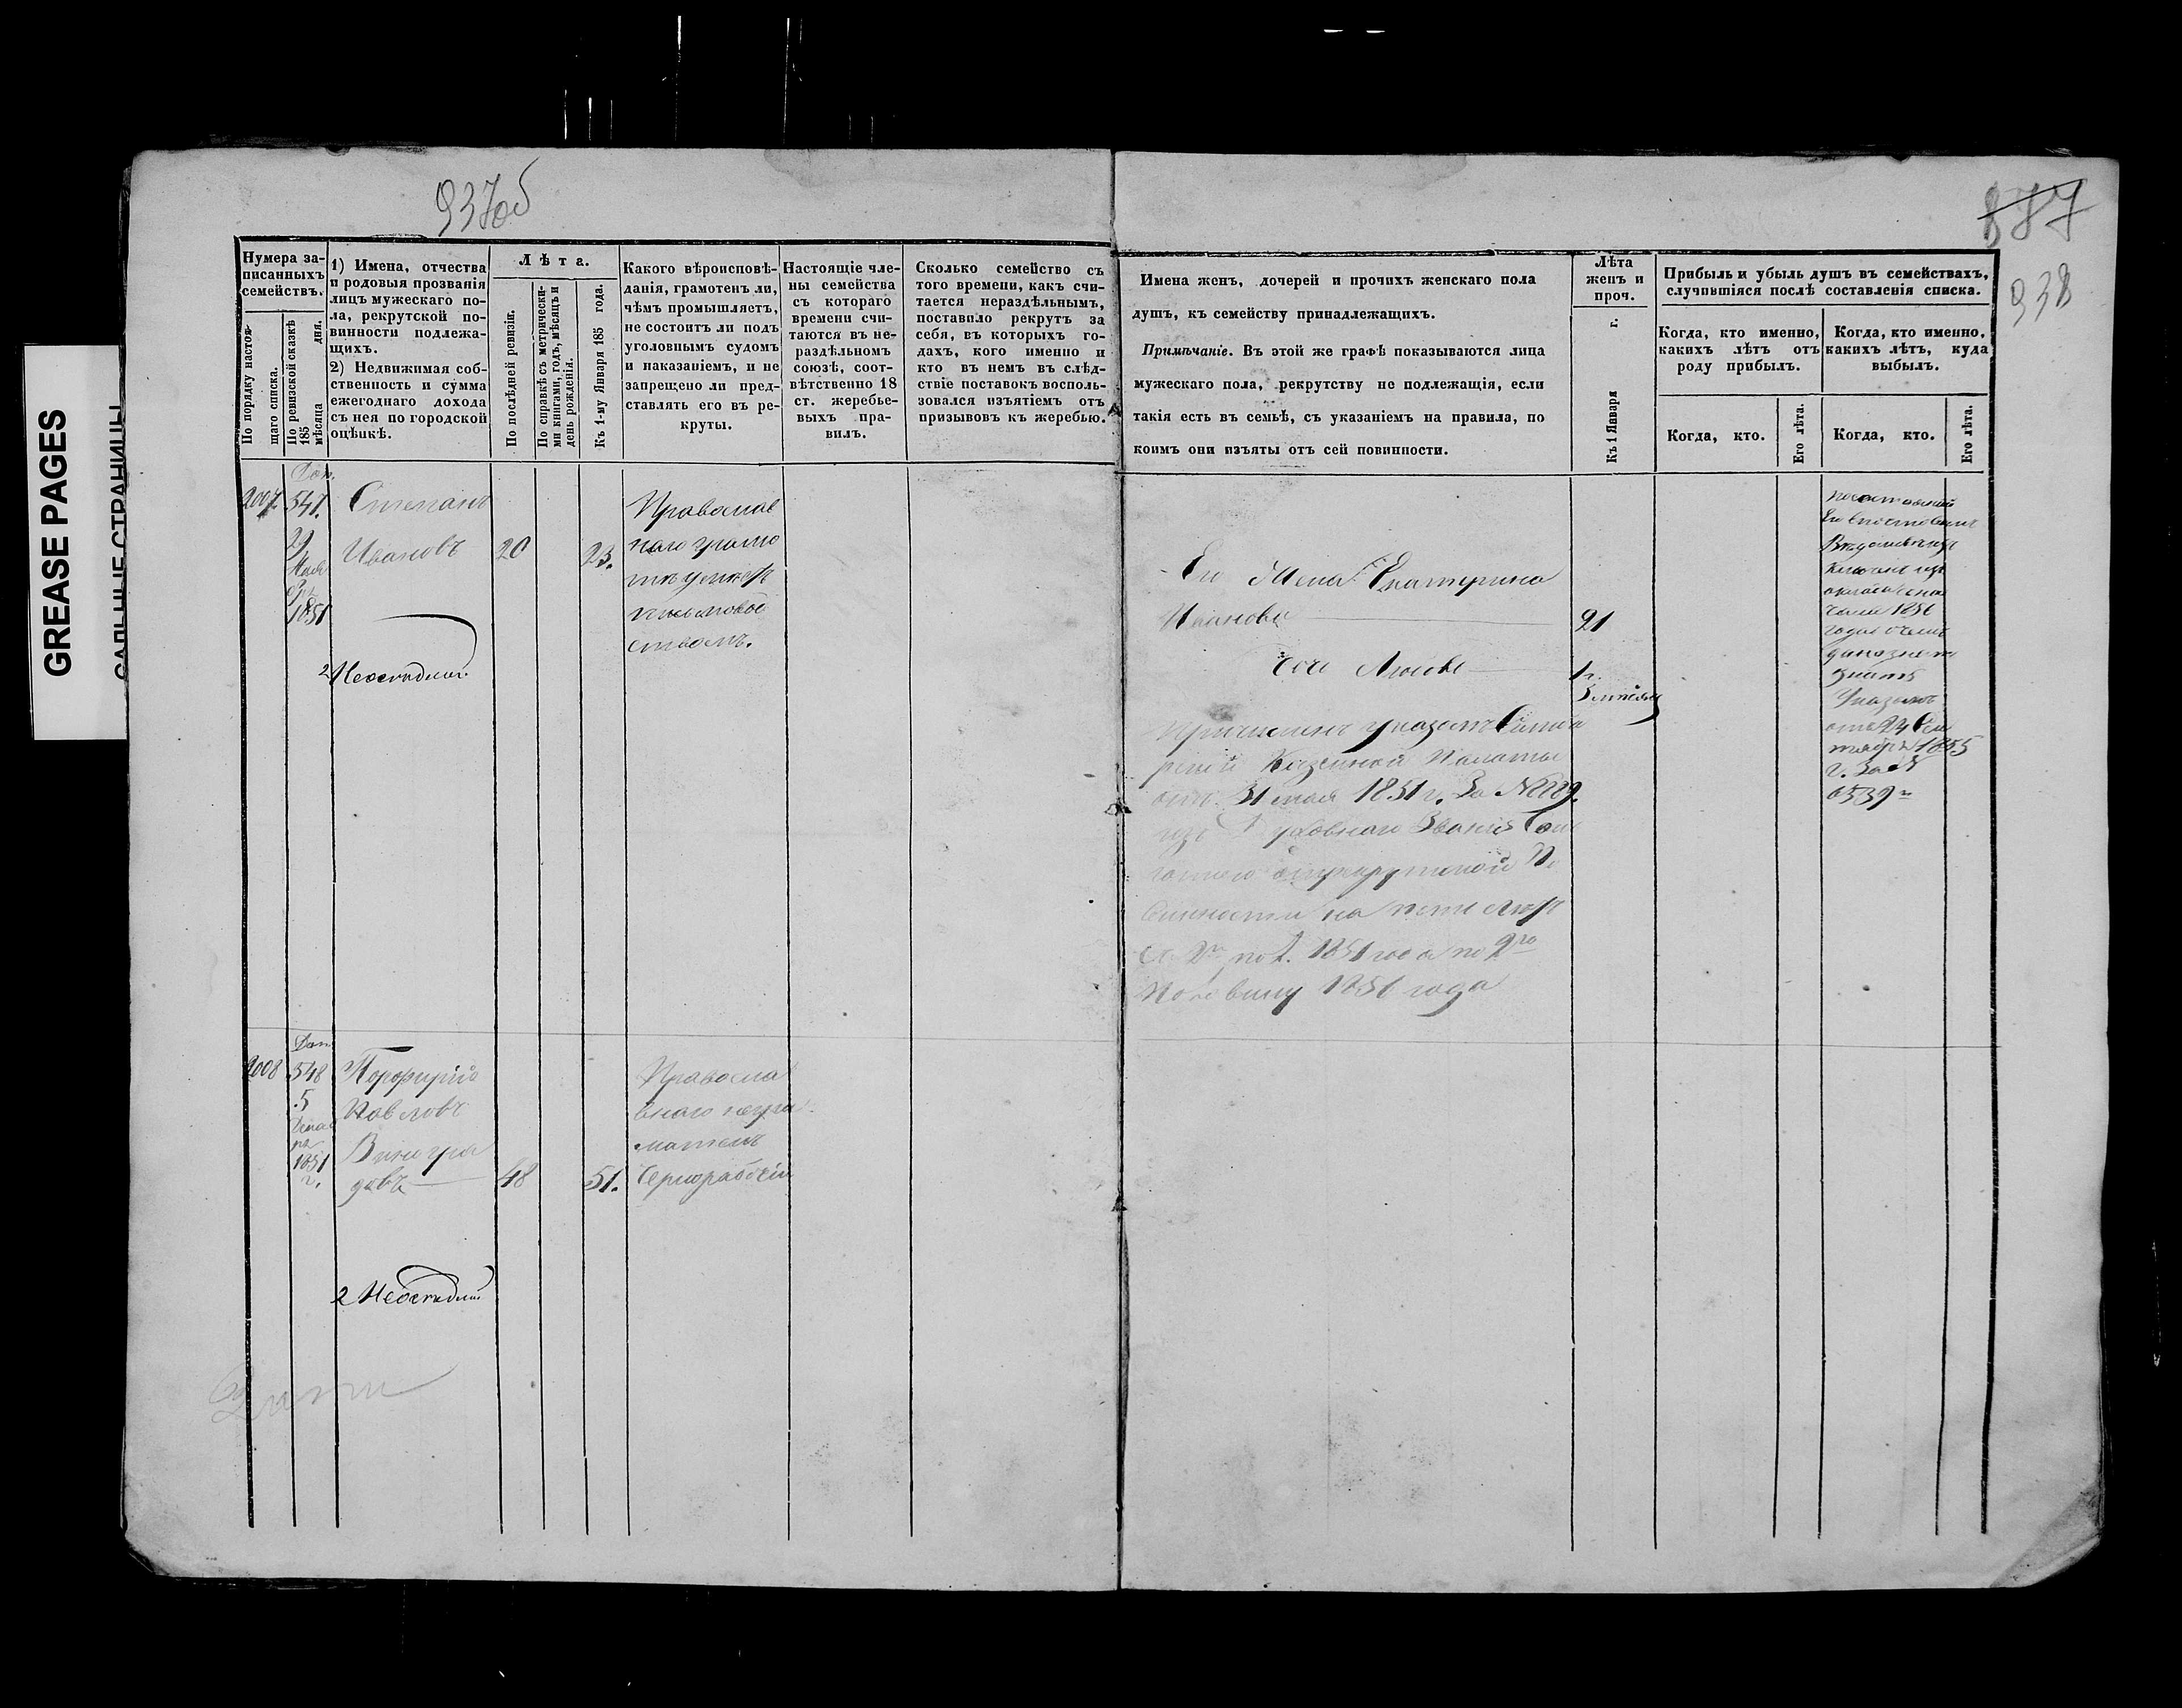 GREASE PAGES
САЛЬНЫЕ СТРАНИЦЫ
937об
877
938
Нумера за-
писанныхъ
семействъ.
По порядку настоя-
щаго списка.
По ревизской сказкѣ
185 дня.
мѣсяца
1) Имена, отчества
и родовыя прозванія
лицъ мужескаго по-
ла, рекрутской по-
винности подлежа-
щихъ.
2) Недвижимая соб-
ственность и сумма
ежегоднаго дохода
съ нея по городской
оцѣнкѣ.
Лѣта.
По послѣдней ревизіи.
По справкѣ съ метрически-
ми книгами, годъ, мѣсяцъ и
день рожденія.
Къ 1-му Января 185 года.
Какого вѣроисповѣ-
данія, грамотенъ ли,
чѣмъ промышляетъ,
не состоитъ ли подъ
уголовнымъ судомъ
и наказаніемъ, и не
запрещено ли пред-
ставлять его въ ре-
круты.
Настоящіе чле-
ны семейства
съ котораго
времени счи-
таются въ не-
раздѣльномъ
союзѣ, соот-
вѣтственно 18
ст. жеребье-
выхъ пра-
вилъ.
Сколько семейство съ
того времени, какъ счи-
тается нераздѣльнымъ,
поставило рекрутъ за
себя, въ которыхъ го-
дахъ, кого именно и
кто въ немъ въ слѣд-
ствіе поставокъ восполь-
зовался изъятіемъ отъ
призывовъ къ жеребью.
Имена женъ, дочерей и прочихъ женскаго пола
душъ, къ семейству принадлежащихъ.
Примѣчаніе. Въ этой же графѣ показываются лица
мужескаго пола, рекрутству не подлежащія, если
такія есть въ семьѣ, съ указаніемъ на правила, по
коимъ они изъяты отъ сей повинности.
Лѣта
женъ и
проч.
Къ 1 Января г.
Прибыль и убыль душъ въ семействахъ,
случившіяся послѣ составленія списка.
Когда, кто именно,
какихъ лѣтъ отъ
роду прибылъ.
Когда, кто именно,
какихъ лѣтъ, куда
выбылъ.
Когда, кто.
Его лѣта.
Когда, кто.
Его лѣта.
2007.
Доп.
547.
1851
Степанъ
Ивановъ
20
23.
Православ
наго грамо
письмовод
ствомъ.
2 Неосѣдлый
Его Жена Екатерина
Иванова
21
дочь Любовь
1 г.
3 мѣсяц
Причисленъ указомъ Симби
рской Казенной Палаты
отъ 31 мая 1851 г. За №
изъ Духовнаго Званія
рекрутской По
винности на пять лѣтъ
со 2й пол. 1851 года по 2ю
Половину 1856 года
1856
Указомъ
отъ 24 Сен
тября 1855
г. За №
6539
2008
Доп
548
5
1851
г.
Порфирій
Павловъ
Виногра
довъ
48
51.
Правосла
внаго негра
мотенъ
Чернорабочій
2 Неосѣдлый